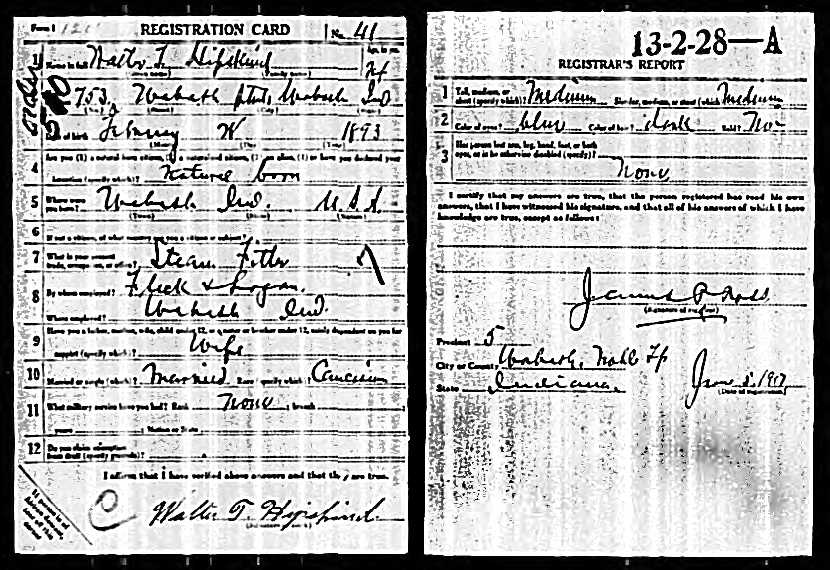 Form 1 REGISTRATION CARD No. 41
1 Name in full Walter T. Age, in yrs. 24
(Given name) (Family name)
753 Wabash Wabash Ind
(No.) (Street) (City) (State)
Date of birth February 1893
(Month) (Day) (Year)
4 Are you (1) a natural born citizen, (2) a naturalized citizen, (3) an alien, (4) or have you declared your
intention (specify which)? Natural born
5 Where were you born? Wabash Ind. U.S.A.
(Town) (State) (Nation)
6 If not a citizen, of what country are you a citizen or subject?
7 What is your present trade, occupation, or office? Steam Fitter 7
8 By whom employed? Flick & Logan
Where employed? Wabash Ind.
9 Have you a father, mother, wife, child under 12, or a sister or brother under 12, solely dependent on you for
support (specify which)? Wife
10 Married or single (which)? Married Race (specify which)? Caucasian
11 What military service have you had? Rank None ; branch
years ; Nation or State
12 Do you claim exemption from draft (specify grounds)?
I affirm that I have verified above answers and that they are true.
Walter T.
13-2-28-A
REGISTRAR'S REPORT
1 Tall, medium, or short (specify which)? Medium Slender, medium, or stout (which)? Medium
2 Color of eyes? blue Color of hair? dark Bald? No
3 Has person lost arm, leg, hand, foot, or both
eyes, or is he otherwise disabled (specify)?
None
I certify that my answers are true, that the person registered has read his own
answers, that I have witnessed his signature, and that all of his answers of which I have
knowledge are true, except as follows:
James P. Noll
(Signature of registrar)
Precinct 5
City or County Wabash, Noble Tp
State Indiana. June 5, 1917
(Date of registration)